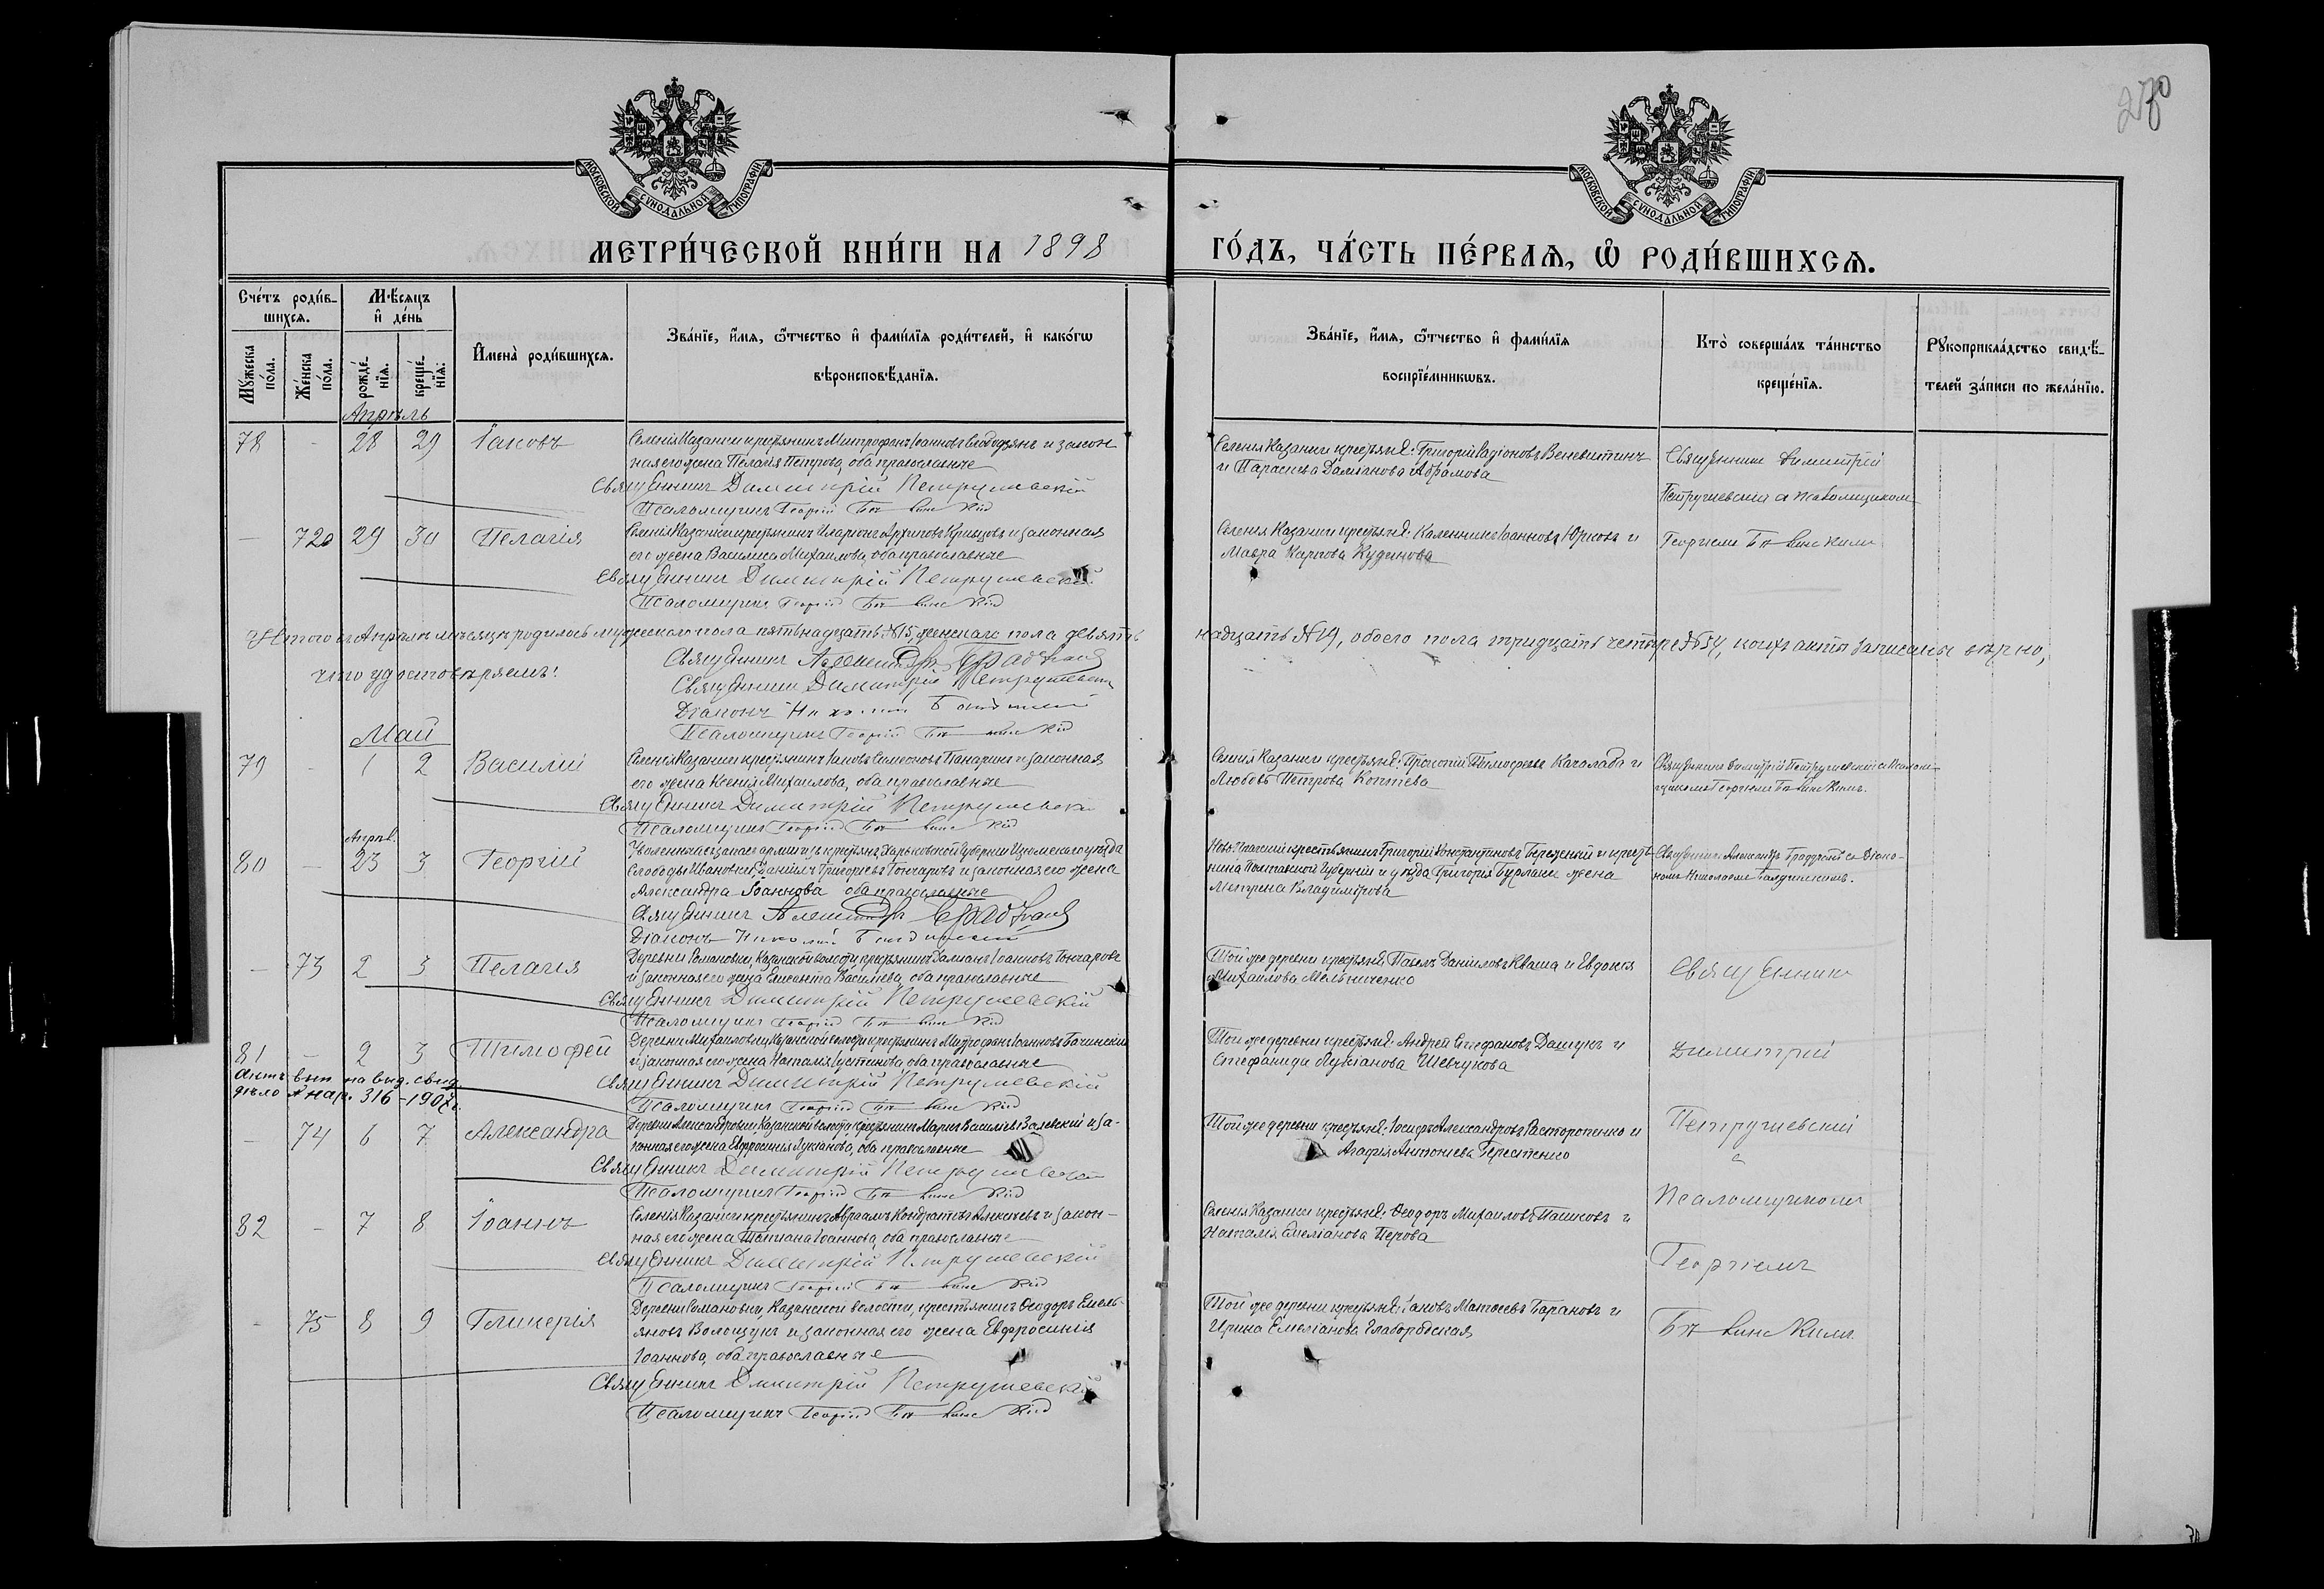 270
МОСКОВСКОЙ СУНОДАЛЬНОЙ ТИПОГРАФІИ
МОСКОВСКОЙ СУНОДАЛЬНОЙ ТИПОГРАФІИ
МЕТРИ́ЧЕСКОЙ КНИ́ГИ НА 1898 ГО́ДЪ, ЧА́СТЬ ПЕ́РВАѦ, Ѡ РОДИ́ВШИХСѦ.
Сче́тъ роди́в-
шихсѧ.
Мꙋ́жеска по́ла.
Же́нска по́ла.
Мѣ́сяцъ и де́нь
рожде́-нїѧ.
креще́-нїѧ:
И҆мена̀ роди́вшихсѧ.
Зва́нїе, и҆́мѧ, ѻ҆́тчество и҆ фами́лїѧ роди́телей, и҆ како́гѡ
вѣроисповѣ́данїѧ.
Зва́нїе, и҆́мѧ, ѻ҆́тчество и҆ фами́лїѧ
воспрїе́мникѡвъ.
Кто̀ соверша́лъ та́инство
креще́нїѧ.
Рꙋкоприкла́дство свидѣ́-
телей за́писи по жела́нїю.
Апрѣль
78 - 28 29 Іаковъ
Селенія Казанки крестьянинъ Митрофанъ Іоанновъ Слободянъ и закон
ная его жена Пелагія Петрова, оба православные
Священникъ Димитрій Петрушевскій
Псаломщикъ Георгій
Селенія Казанки крестьяне: Григорій Родіоновъ Веневитинъ
и Параскева Даміанова Абрамова
Священникъ Димитрій
Петрушевскій съ псаломщикомъ
— 72 29 30 Пелагія
Селенія Казанки крестьянинъ Иларіонъ Архиповъ Кривцовъ и законная
его жена Василиса Михаилова, оба православные
Священникъ Димитрій Петрушевскій
Псаломщикъ Георгій
Селенія Казанки крестьяне: Каленникъ Іоанновъ Юрковъ и
Мавра Карпова Кудинова
Георгіемъ
Итого въ Апрѣлѣ мѣсяцѣ родилось мужескаго пола пятьнадцать №15, женскаго пола девять
надцать №19, обоего пола тридцать четыре №34, коихъ акты записаны вѣрно,
что удостовѣряемъ:
Священникъ Александръ
Священникъ Димитрій Петрушевскій
Діаконъ Николай
Псаломщикъ Георгій
Май
79 - 1 2 Василій
Селенія Казанки крестьянинъ Іаковъ Симеоновъ Панаринъ и законная
его жена Ксенія Михаилова, оба православные
Священникъ Димитрій Петрушевскій
Псаломщикъ Георгій
Селенія Казанки крестьяне: Прокопій Тимофеевъ Качалабъ и
Любовь Петрова Коптева
Священникъ Димитрій Петрушевскій съ Псалом-
щикомъ Георгіемъ
Апрѣл.
80 — 23 3 Георгій
Уволенный въ запасъ арміи изъ крестьянъ Харьковской губерніи Изюмскаго уѣзда
Слободы Ивановки, Даніилъ Григорьевъ Гончаровъ и законная его жена
Александра Іоаннова оба православные
Священникъ Александръ
Діаконъ Николай
крестьянинъ Григорій Константиновъ Березецкій и кресть-
нина Полтавской губерніи и уѣзда Григорія Бурлаки жена
Митрина Владимірова
Священникъ Александръ съ Діако-
номъ Николаемъ
— 73 2 3 Пелагія
Деревни Романовки, Казанской волости, крестьянинъ Даміанъ Іоанновъ Гончаровъ
и законная его жена Елисавета Васильева, оба православные
Священникъ Димитрій Петрушевскій
Псаломщикъ Георгій
Той же деревни крестьяне: Павелъ Даніиловъ Кваша и Евдокія
Михаилова Мельниченко
Священникъ
81 — 2 3 Тимофей
Деревни Михаиловки Казанской волости крестьянинъ Іоанновъ Бачинскій
и законная его жена Наталія Іустинова, оба православные
Священникъ Димитрій Петрушевскій
Псаломщикъ Георгій
Той же деревни крестьяне: Андрей Стефановъ Дашукъ и
Стефанида Лукіанова Шевчукова
Димитрій
Актъ вып на выд. свид.
дѣло нар. 316 - 1907 г.
— 74 6 7 Александра
Деревни Александровки, Казанской волости крестьянинъ Марко Васильевъ Залевскій и за-
конная его жена Евфросинія Лукіанова, оба православные
Священникъ Димитрій Петрушевскій
Псаломщикъ Георгій
Той же деревни крестьяне: Іосифъ Александровъ Расторопенко и
Агафія Антоніева Терещенко
Петрушевскій
съ
82 — 7 8 Іоаннъ
Селенія Казанки крестьянинъ Авраамъ Кондратьевъ Алексѣевъ и закон-
ная его жена Татіана Іоаннова, оба православные
Священникъ Димитрій Петрушевскій
Псаломщикъ Георгій
Селенія Казанки крестьяне: Ѳеодоръ Михаиловъ Пашковъ и
Наталія Емеліанова Перова
Псаломщикомъ
Георгіемъ
- 75 8 9 Гликерія
Деревни Романовки, Казанской волости, крестьянинъ Ѳеодоръ Емель-
яновъ Волощукъ и законная его жена Евфросинія
Іоаннова, оба православные
Священникъ Димитрій Петрушевскій
Псаломщикъ Георгій
Той же деревни крестьяне: Іаковъ Матѳеевъ Барановъ и
Ирина Емеліанова Слабородская